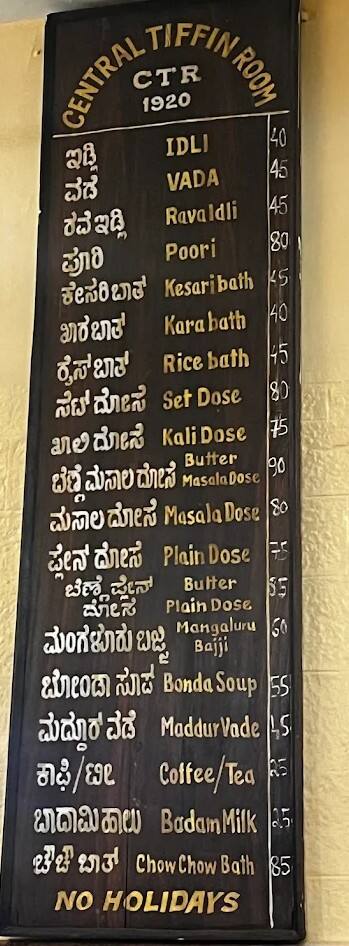 CENTRAL TIFFIN ROOM
CTR
1920
ಇಡ್ಲಿ IDLI 40
ವಡೆ VADA 45
ರವೆ ಇಡ್ಲಿ Rava Idli 45
ಪೂರಿ Poori 80
ಕೇಸರಿ ಬಾತ್ Kesari bath 45
ಖಾರ ಬಾತ್ Kara bath 40
ರೈಸ್ ಬಾತ್ Rice bath 45
ಸೆಟ್ ದೋಸೆ Set Dose 80
ಖಾಲಿ ದೋಸೆ Kali Dose 75
ಬೆಣ್ಣೆ ಮಸಾಲ ದೋಸೆ Butter Masala Dose 90
ಮಸಾಲ ದೋಸೆ Masala Dose 80
ಪ್ಲೇನ್ ದೋಸೆ Plain Dose 75
ಬೆಣ್ಣೆ ಪ್ಲೇನ್ Butter 85
ದೋಸೆ Plain Dose
ಮಂಗಳೂರು ಬಜ್ಜಿ Mangaluru Bajji 60
ಬೋಂಡಾ ಸೂಪ್ Bonda Soup 55
ಮದ್ದೂರ್ ವಡೆ Maddur Vade 45
ಕಾಫಿ/ಟೀ Coffee/Tea 25
ಬಾದಾಮಿ ಹಾಲು Badam Milk 25
ಚೌಚೌ ಬಾತ್ Chow Chow Bath 85
NO HOLIDAYS